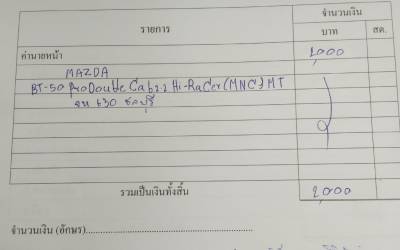 รายการ จำนวนเงิน
บาท สต.
ค่านายหน้า 2,000
MAZDA
BT-50 Pro Double Cab 2.2 Hi-Racer (MNC) MT
ชลบุรี
รวมเป็นเงินทั้งสิ้น 2,000
จำนวนเงิน (อักษร)